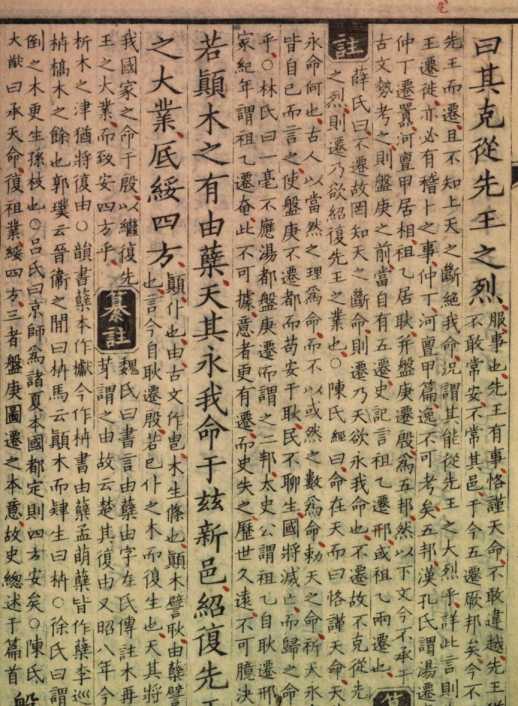 曰其克從先王之烈
服事也先王有事恪謹天命不敢違越先王
不敢常安不常其邑于今五遷厥邦矣今不
先王而遷且不知上天之斷絕我命況謂其能從先王之大烈乎詳此言則
王遷徙亦必有稽卜之事仲丁河亶甲篇逸不可考矣五邦漢孔氏謂湯遷
仲丁遷囂河亶甲居相祖乙居耿并盤庚遷殷為五邦然以下文今不承于
古文勢考之則盤庚之前當自有五遷史記言祖乙遷邢或祖乙兩遷也
註
薛氏曰不遷故罔知天之斷命則遷乃天欲永我命也不遷故不克從先
之烈則遷乃欲紹復先王之業也○陳氏經曰命在天而曰恪謹天命天
永命何也古人以當然之理為命而不以或然之數為命勅天之命祈天永
皆自已而言之使盤庚不遷都而苟安于耿民不聊生國將滅亡而歸之命
乎○林氏曰一毫不應湯都盤庚遷而謂之二邦太史公謂祖乙自耿遷邢
家紀年謂祖乙遷奄此不可據意者更有遷而史失之歷世久遠不可臆決
若顛木之有由蘖天其永我命于茲新邑紹復先王
之大業厎綏四方
顛仆也由古文作甹木生條也顛木譬耿由蘖譬
也言今自耿遷殷若已仆之木而復生也天其將
我國家之命于殷以繼復先
王之大業而致安四方乎
纂註
魏氏曰書言由蘖由字左氏傳註木再
芽謂之由故云楚其復由又昭八年今
析木之津猶將復由○韻書蘖本作櫱今作枿書由蘖孟萌蘖皆作蘖李巡
枿槁木之餘也郭璞云晉衛之間曰枿馬云顛木而肄生曰枿○徐氏曰謂
倒之木更生孫枝也○呂氏曰京師為諸夏本國都定則四方安矣○陳氏
大猷曰承天命復祖業綏四方三者盤庚圖遷之本意故史總述于篇首